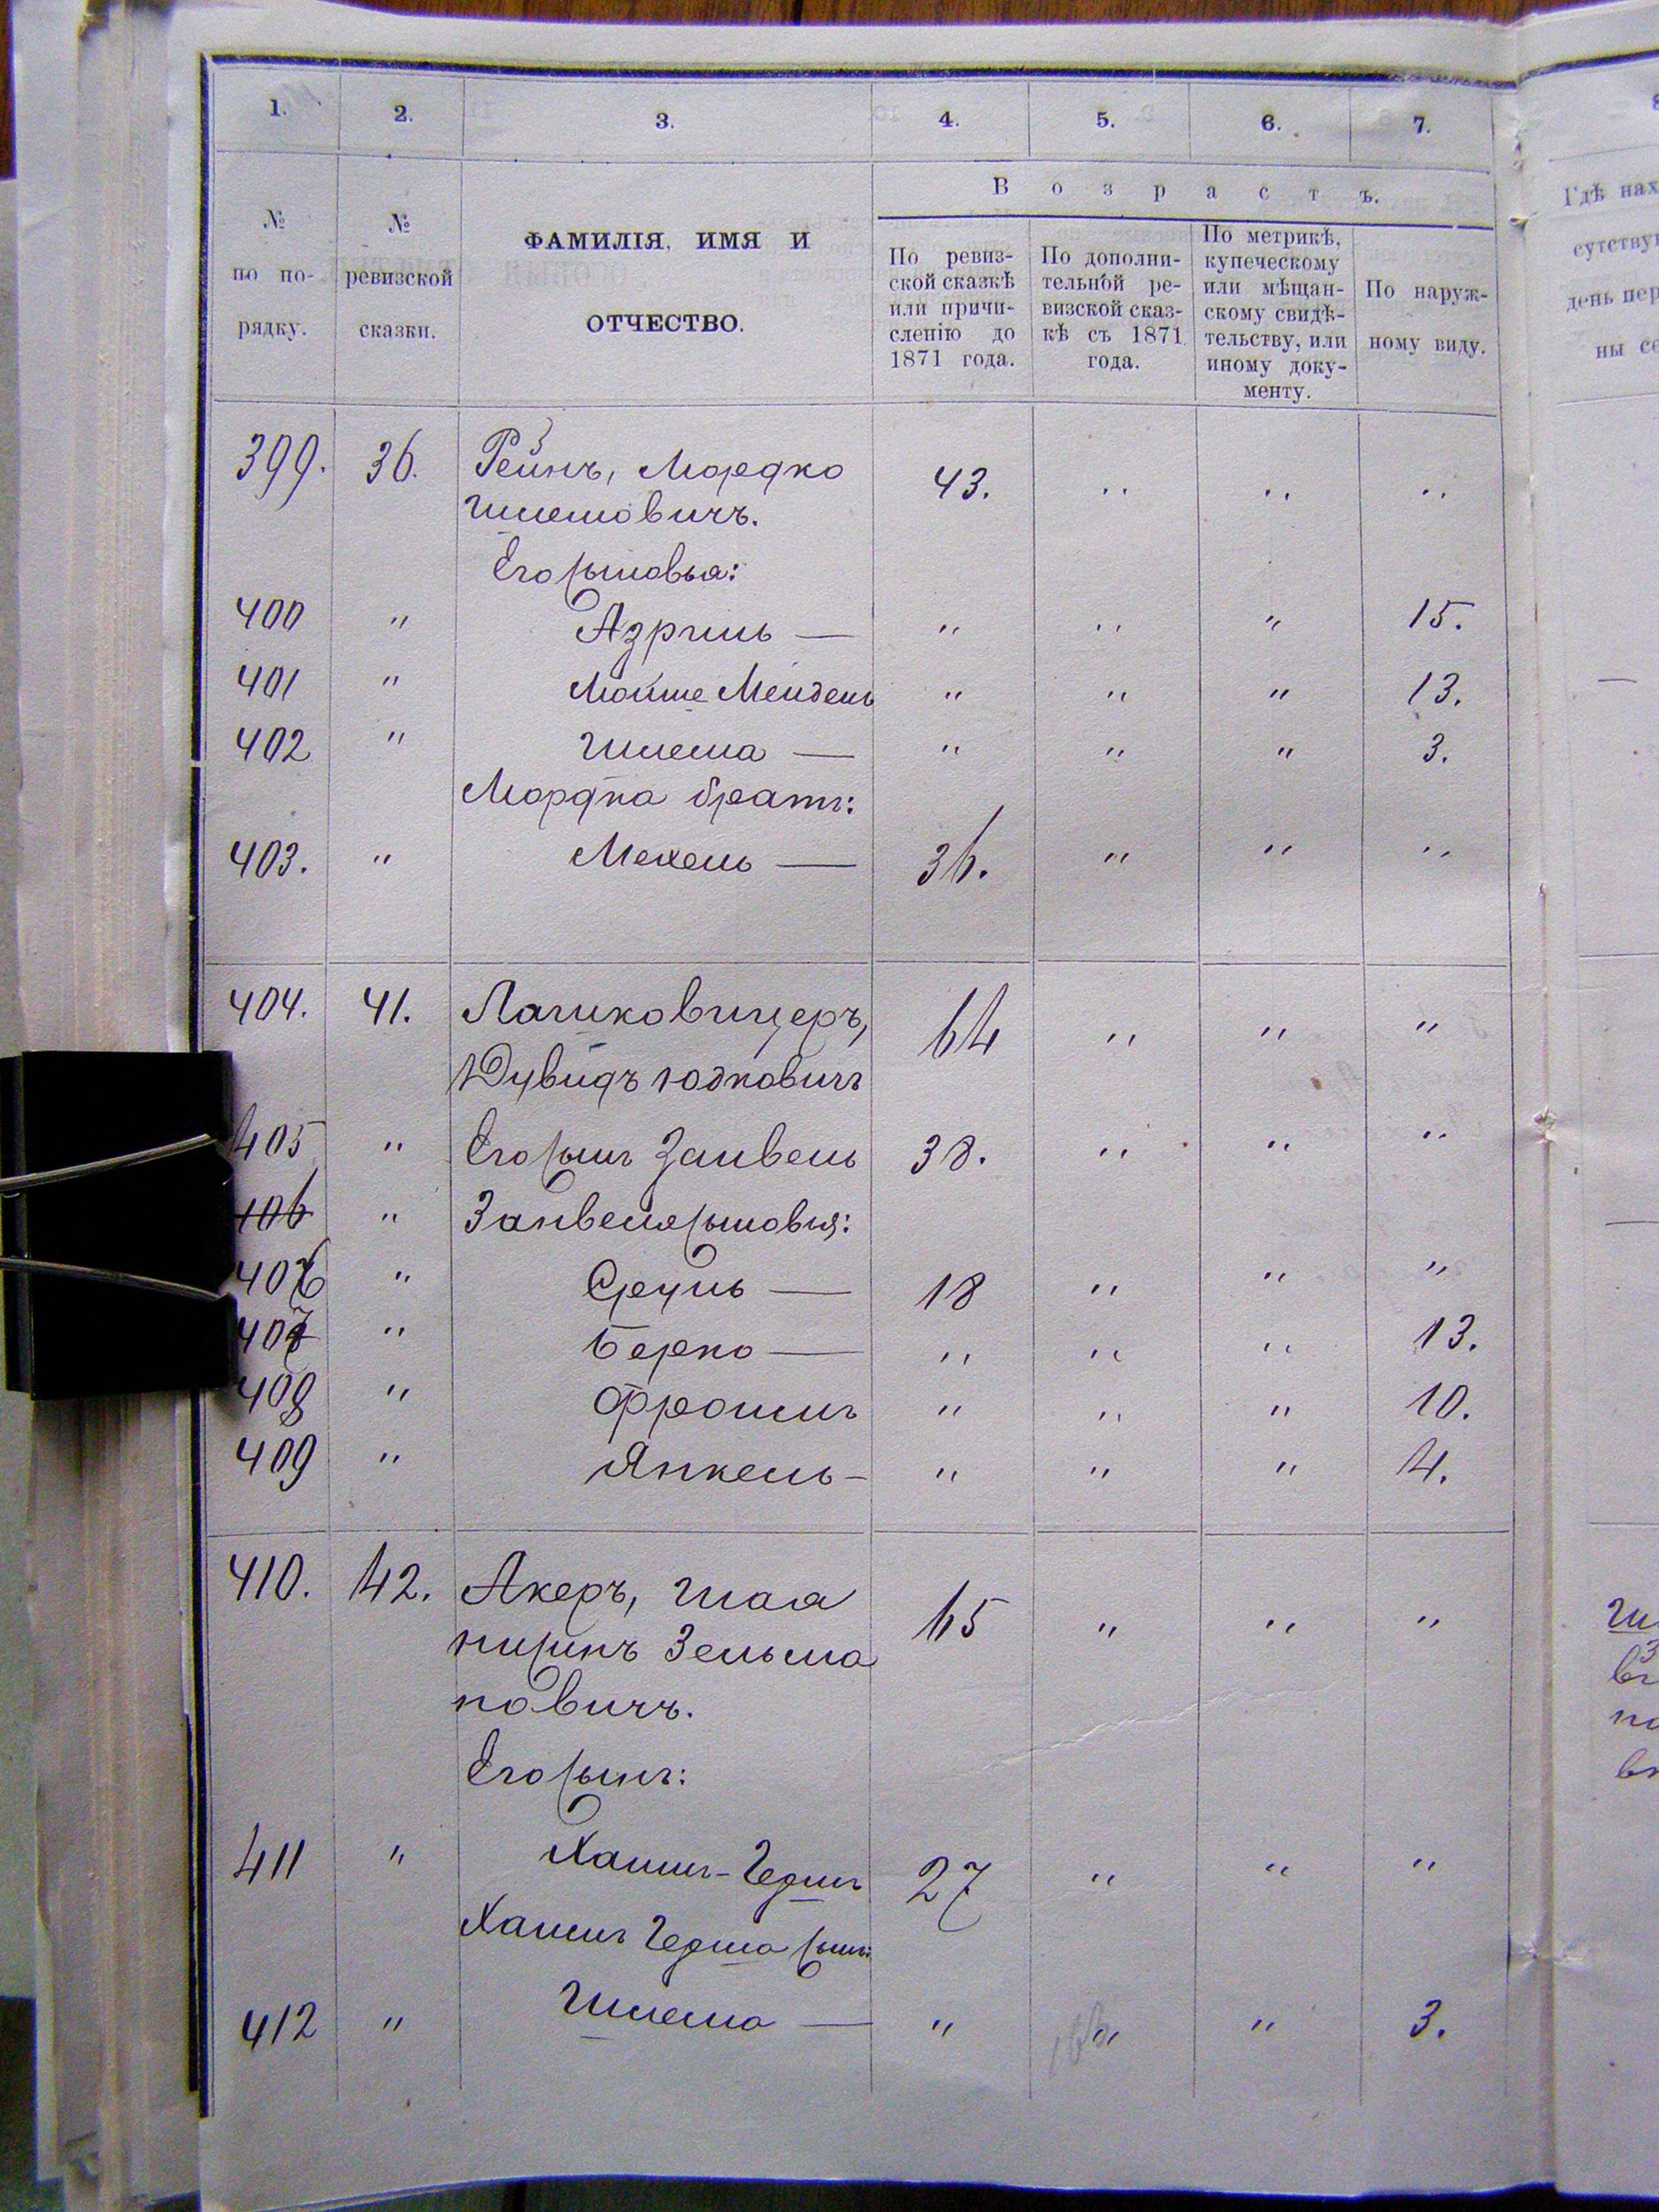 1. 2. 3. 4. 5. 6. 7.
№ по по-рядку.
№ ревизской сказки.
ФАМИЛІЯ, ИМЯ И
ОТЧЕСТВО.
Возрастъ.
По ревиз-
ской сказкѣ
или причи-
сленію до
1871 года.
По дополни-
тельной ре-
визской сказ-
кѣ съ 1871
года.
По метрикѣ,
купеческому
или мѣщан-
скому свидѣ-
тельству, или
иному доку-
менту.
По наруж-
ному виду.
Гдѣ нах
сутству
день пер
ны се
399. 36. Рейзнъ, Мордко 43. " " "
Шлемовичъ.
Его сыновья:
400 " Азриль — " " " 15.
401 " Мойше Мендель " " " 13.
402 " Шлема — " " " 3.
Мордка братъ:
403. " Мехель — 36. " " "
404. 41. Лашковицеръ, 64 " " "
Дувидъ Юдковичъ
405 " Его сынъ Занвель 38. " " "
406 " Занвеля сыновья:
406 " Сруль — 18 " " "
407 " Берко — " " " 13.
408 " Фроимъ " " " 10.
409 " Янкель - " " " 4.
410. 42. Акеръ, Шая 65 " " "
Нисинъ Зельма
новичъ.
Его сынъ:
411 " Хаимъ-Гершъ 27 " " "
Хаимъ Герша сынъ:
412 " Шлема — " " " 3.